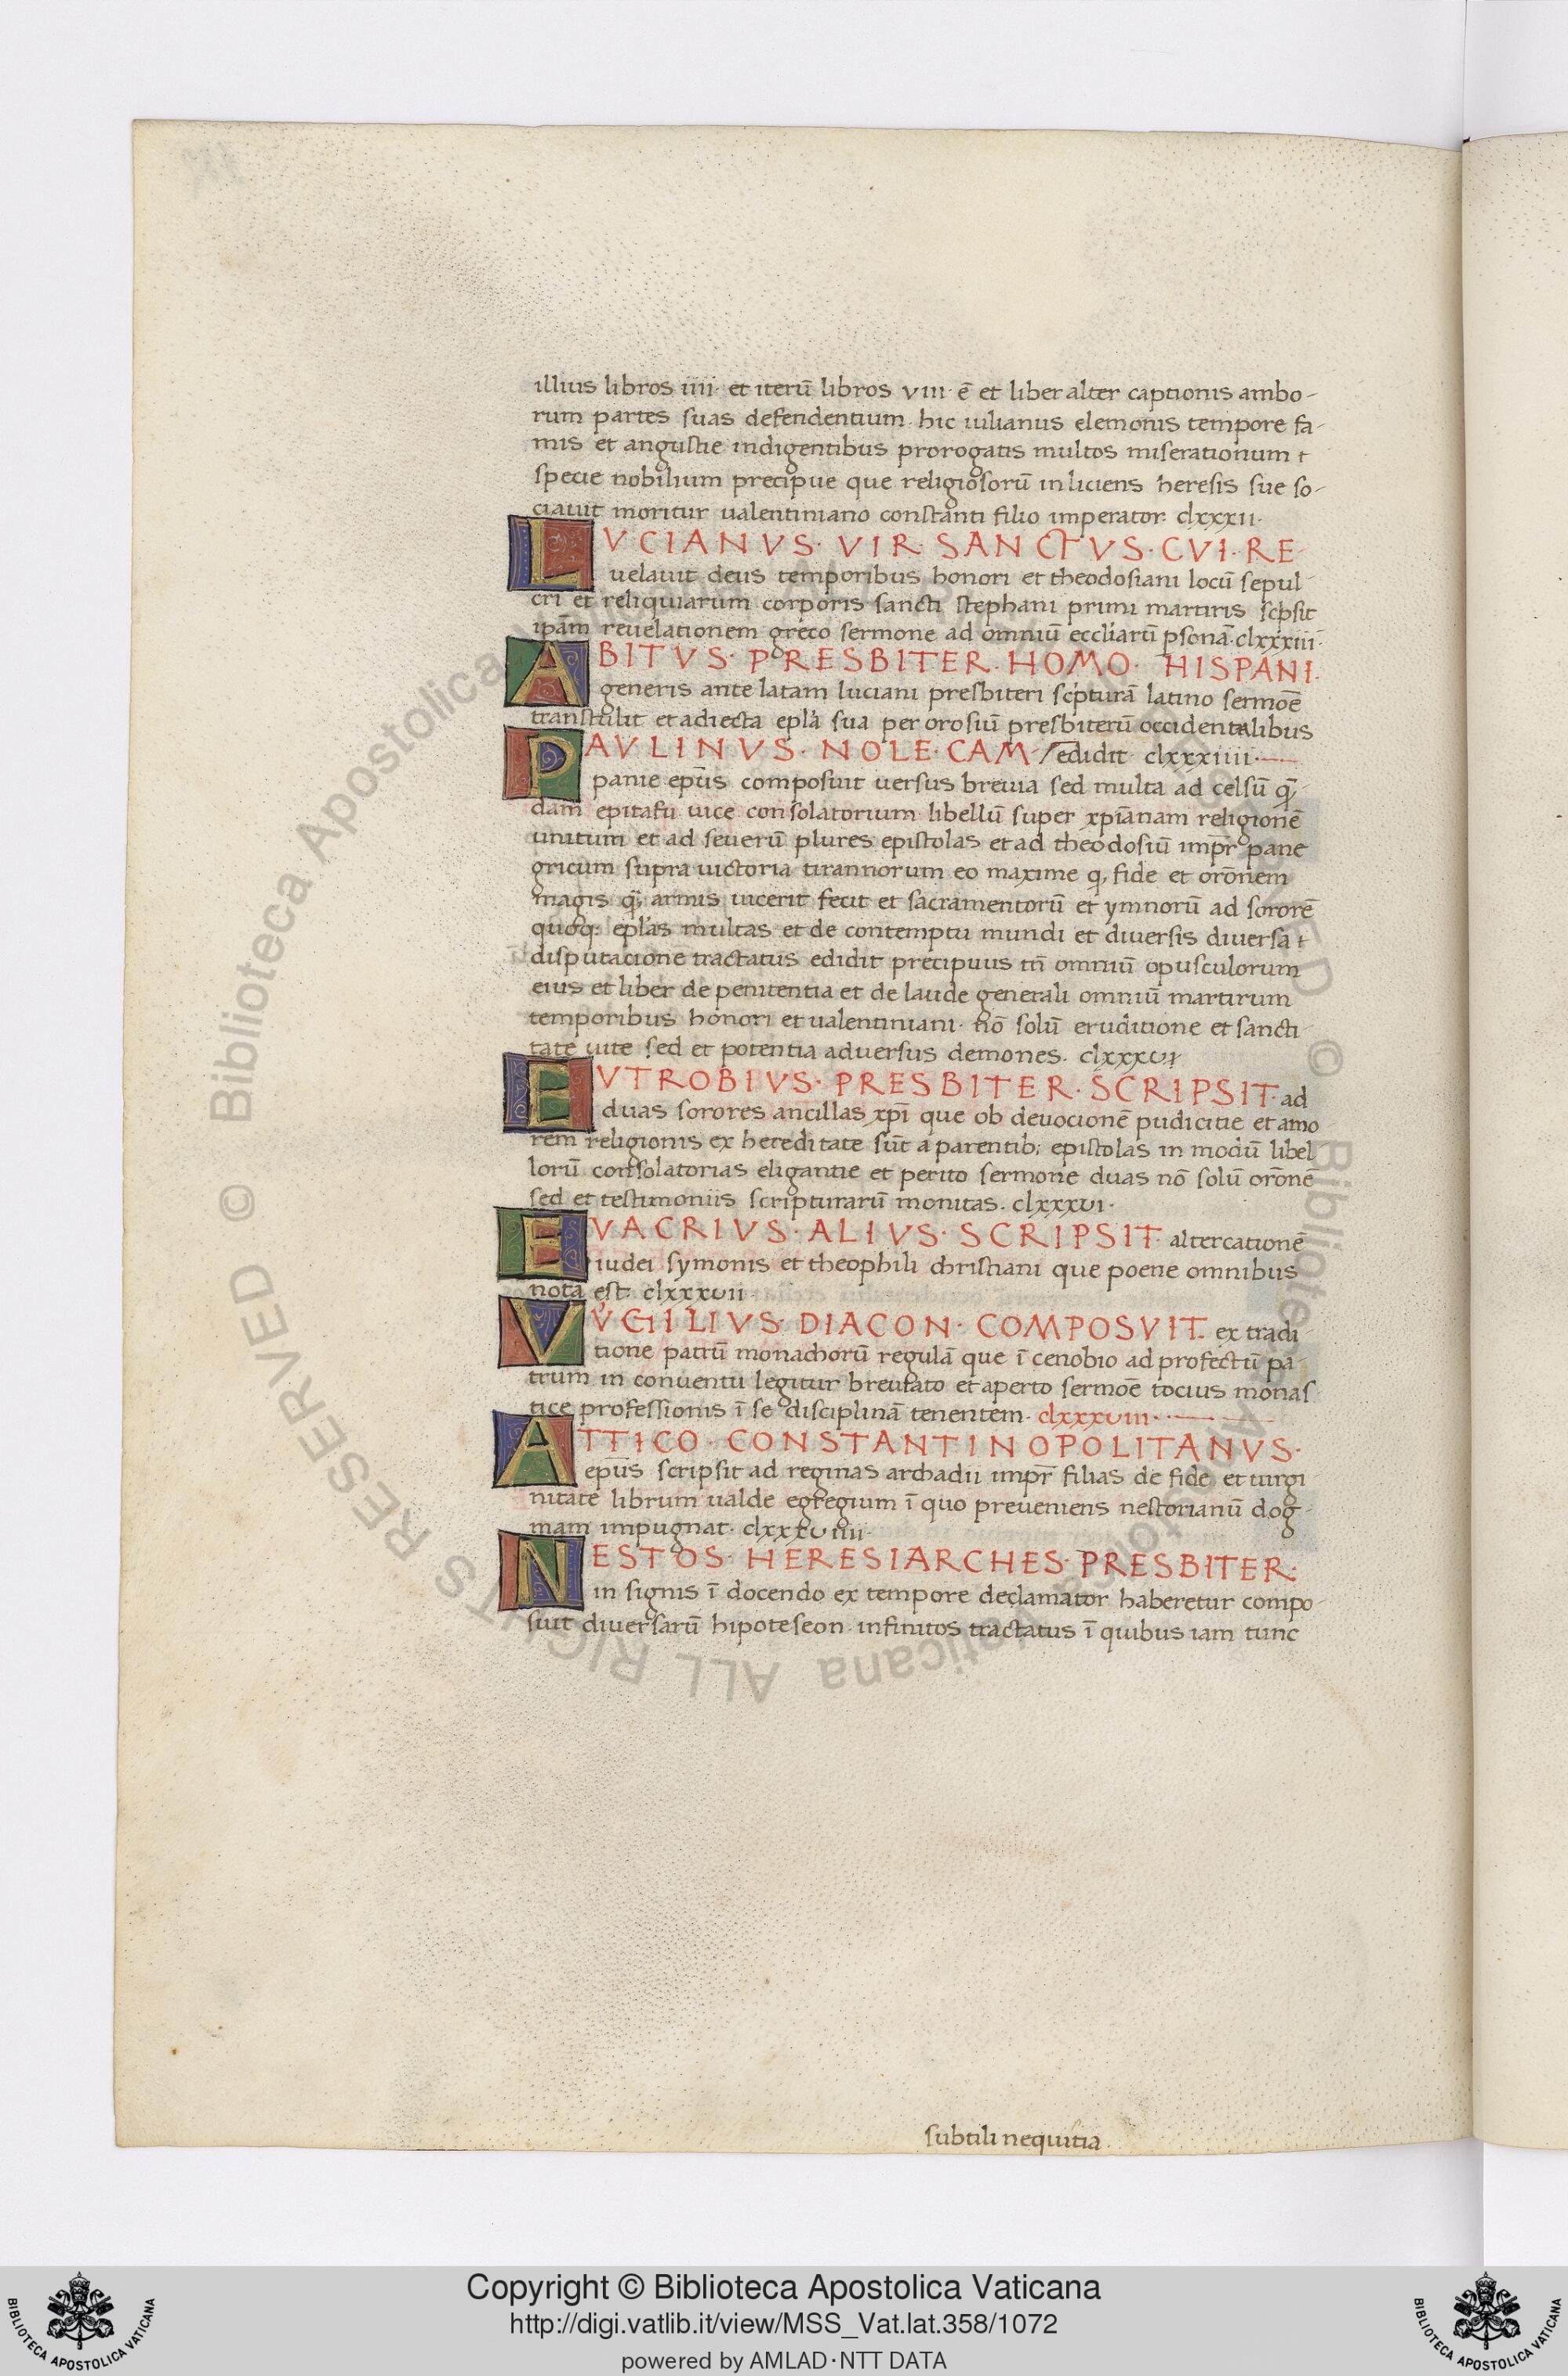 illius libros iiii· et iterū libros viii· ē et liber alter captionis ambo-
rum partes suas defendentium· hic iulianus elemonis tempore fa-
mis et angustie indigentibus prorogatis multos miserationum t
specie nobilium precipue que religiosorū inliciens heresis sue so-
ciauit moritur ualentiniano constanti filio imperator· clxxxii·
LVCIANVS· VIR· SANCTVS· CVI· RE-
uelauit deus temporibus honori et theodosiani locū sepul-
cri et reliquiarum corporis sancti stephani primi martiris scp̄sit
ipām reuelationem greco sermone ad omniū eccl̄iarū p̱sonā· clxxxiii·
ABITVS· PRESBITER· HOMO· HISPANI·
generis ante latam luciani presbiteri scp̄turā latino sermoē
transtulit et adiecta epl̄a sua per orosiū presbiterū occidentalibus
PAVLINVS· NOLE· CAM- / edidit· clxxxiiii·
panie ep̄us composuit uersus breuia sed multa ad celsū q̄-
dam epitafii uice consolatorium libellū super xp̄ianam religionē
unitum et ad seuerū plures epistolas et ad theodosiū imp̄r pane
gricum supra uictoria tirannorum eo maxime q, fide et orōnem
magis q̄; armis uicerit fecit et sacramentorū et ymnorū ad sororē
quoq: epl̄as multas et de contemptu mundi et diuersis diuersa t
disputacionē tractatus edidit precipuus tn̄ omniū opusculorum
eius et liber de penitentia et de laude generali omniū martirum
temporibus honori et ualentiniani· nō solū eruditione et sancti-
tate uite sed et potentia aduersus demones. clxxxvi
EVTROBIVS· PRESBITER· SCRIPSIT· ad
duas sorores ancillas xp̄i que ob deuocionē pudicitie et amo
rem religionis ex hereditate sūt a parentib; epistolas in modū libel
lorū consolatorias eligantie et perito sermone duas nō solū orōnē
sed et testimoniis scripturarū monitas. clxxxvi·
EVACRIVS· ALIVS· SCRIPSIT altercationē
iudei symonis et theophili christiani que poene omnibus
nota est· clxxxvii·
VVGILIVS· DIACON· COMPOSVIT· ex tradi-
tione patrū monachorū regulā que ī cenobio ad profectū pa-
trum in conuentu legitur breuiato et aperto sermoē tocius monas
tice professionis ī se disciplinā tenentem· clxxxviii·
ATTICO· CONSTANTINOPOLITANVS·
ep̄us scripsit ad reginas archadii imp̄r filias de fide et uirgi
nitate librum ualde egregium ī quo preueniens nestorianū dog-
mam impugnat· clxxxviiii·
NESTOS· HERESIARCHES· PRESBITER·
in signis ī docendo ex tempore declamator haberetur compo-
suit diuersarū hipoteseon· infinitos tractatus ī quibus iam tunc
subtili nequitia
© Biblioteca Apostolica Vaticana ALL RIGHTS RESERVED
Copyright © Biblioteca Apostolica Vaticana
http://digi.vatlib.it/view/MSS_Vat.lat.358/1072
powered by AMLAD·NTT DATA
BIBLIOTECA APOSTOLICA VATICANA
BIBLIOTECA APOSTOLICA VATICANA